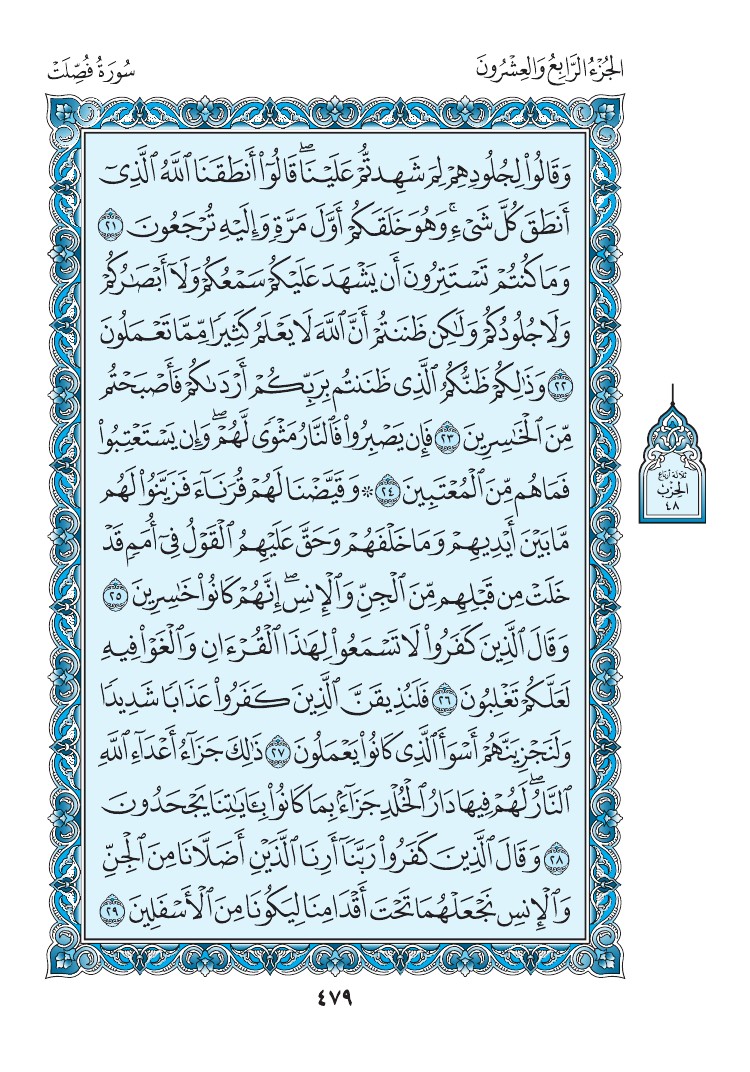 الجُزْءُ الرَّابِعُ وَالعِشْرُونَ
سُورَةُ فُصِّلَتْ
وَقَالُواْ لِجُلُودِهِمْ لِمَ شَهِدتُّمْ عَلَيْنَاۖ قَالُوٓاْ أَنطَقَنَا ٱللَّهُ ٱلَّذِىٓ
أَنطَقَ كُلَّ شَىْءٍۚ وَهُوَ خَلَقَكُمْ أَوَّلَ مَرَّةٍ وَإِلَيْهِ تُرْجَعُونَ ٢١
وَمَا كُنتُمْ تَسْتَتِرُونَ أَن يَشْهَدَ عَلَيْكُمْ سَمْعُكُمْ وَلَآ أَبْصَٰرُكُمْ
وَلَا جُلُودُكُمْ وَلَٰكِن ظَنَنتُمْ أَنَّ ٱللَّهَ لَا يَعْلَمُ كَثِيرًا مِّمَّا تَعْمَلُونَ
٢٢ وَذَٰلِكُمْ ظَنُّكُمُ ٱلَّذِى ظَنَنتُم بِرَبِّكُمْ أَرْدَىٰكُمْ فَأَصْبَحْتُم
مِّنَ ٱلْخَٰسِرِينَ ٢٣ فَإِن يَصْبِرُواْ فَٱلنَّارُ مَثْوًى لَّهُمْۖ وَإِن يَسْتَعْتِبُواْ
فَمَا هُم مِّنَ ٱلْمُعْتَبِينَ ٢٤ ۞ وَقَيَّضْنَا لَهُمْ قُرَنَآءَ فَزَيَّنُواْ لَهُم
مَّا بَيْنَ أَيْدِيهِمْ وَمَا خَلْفَهُمْ وَحَقَّ عَلَيْهِمُ ٱلْقَوْلُ فِىٓ أُمَمٍ قَدْ
خَلَتْ مِن قَبْلِهِم مِّنَ ٱلْجِنِّ وَٱلْإِنسِۖ إِنَّهُمْ كَانُواْ خَٰسِرِينَ ٢٥
وَقَالَ ٱلَّذِينَ كَفَرُواْ لَا تَسْمَعُواْ لِهَٰذَا ٱلْقُرْءَانِ وَٱلْغَوْاْ فِيهِ
لَعَلَّكُمْ تَغْلِبُونَ ٢٦ فَلَنُذِيقَنَّ ٱلَّذِينَ كَفَرُواْ عَذَابًا شَدِيدًا
وَلَنَجْزِيَنَّهُمْ أَسْوَأَ ٱلَّذِى كَانُواْ يَعْمَلُونَ ٢٧ ذَٰلِكَ جَزَآءُ أَعْدَآءِ ٱللَّهِ
ٱلنَّارُۖ لَهُمْ فِيهَا دَارُ ٱلْخُلْدِ جَزَآءًۢ بِمَا كَانُواْ بِـَٔايَٰتِنَا يَجْحَدُونَ
٢٨ وَقَالَ ٱلَّذِينَ كَفَرُواْ رَبَّنَآ أَرِنَا ٱلَّذَيْنِ أَضَلَّانَا مِنَ ٱلْجِنِّ
وَٱلْإِنسِ نَجْعَلْهُمَا تَحْتَ أَقْدَامِنَا لِيَكُونَا مِنَ ٱلْأَسْفَلِينَ ٢٩
ثلاثة أرباع
الحزب
٤٨
٤٧٩